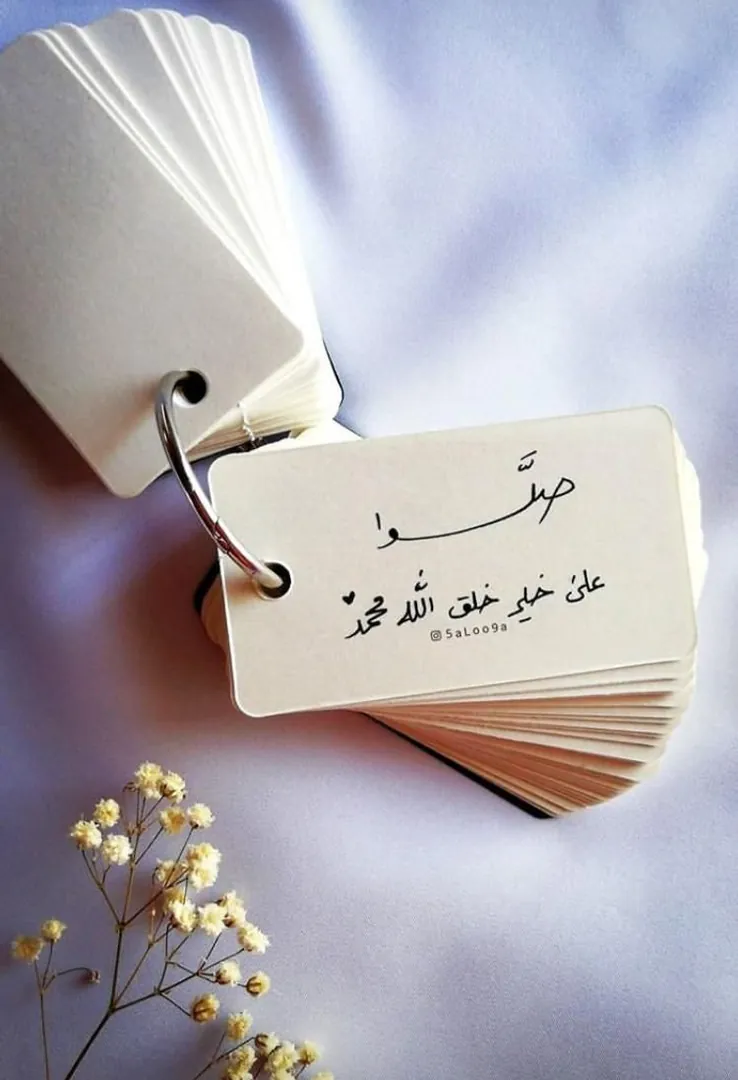 صلَّوا
على خير خلق اللّٰه محمد ♥
@5aLoo9a